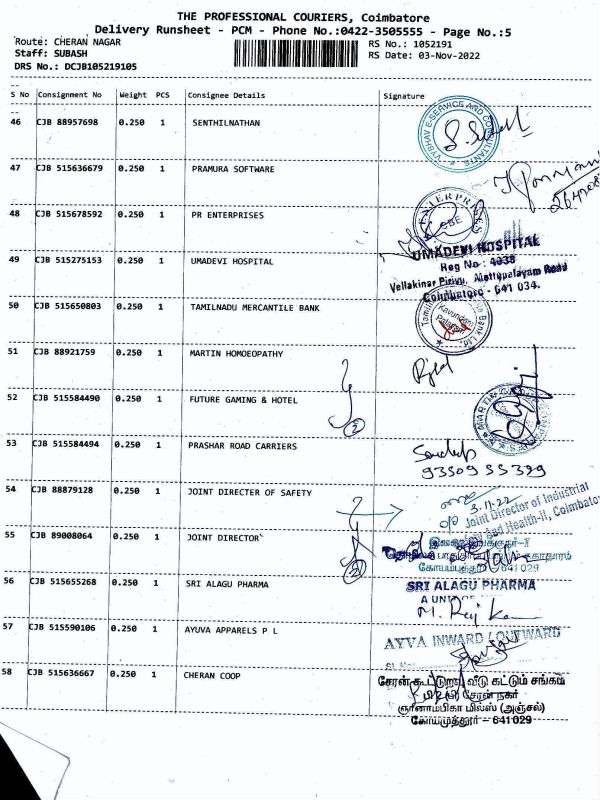 THE PROFESSIONAL COURIERS, Coimbatore
Delivery Runsheet - PCM - Phone No.:0422-3505555 - Page No.:5
Route: CHERAN NAGAR
RS No.: 1052191
Staff: SUBASH
RS Date: 03-Nov-2022
DRS No.: DCJB105219105
S No Consignment No Weight PCS Consignee Details Signature
46 CJB 88957698 0.250 1 SENTHILNATHAN
VYBHAV E-SERVICE AND CONSULTANTS
47 CJB 515636679 0.250 1 PRAMURA SOFTWARE
48 CJB 515678592 0.250 1 PR ENTERPRISES
49 CJB 515275153 0.250 1 UMADEVI HOSPITAL
UMADEVI HOSPITAL
Reg No: 4038
Vellakinar Pirivu, Mettupalayam Road
Coimbatore - 641 034.
50 CJB 515650803 0.250 1 TAMILNADU MERCANTILE BANK
Kavundam
Palayam
51 CJB 88921759 0.250 1 MARTIN HOMOEOPATHY
52 CJB 515584490 0.250 1 FUTURE GAMING & HOTEL
2
53 CJB 515584494 0.250 1 PRASHAR ROAD CARRIERS
9350955329
54 CJB 88879128 0.250 1 JOINT DIRECTER OF SAFETY
3.11.22
o/o Joint Director of Industrial
Safety and Health-II, Coimbatore
55 CJB 89008064 0.250 1 JOINT DIRECTOR
2
கோயம்புத்தூர் - 641029
56 CJB 515655268 0.250 1 SRI ALAGU PHARMA
SRI ALAGU PHARMA
A UNIT OF
57 CJB 515590106 0.250 1 AYUVA APPARELS P L
AYVA INWARD / OUTWARD
Sl. No:
58 CJB 515636667 0.250 1 CHERAN COOP
சேரன் கூட்டுறவு வீடு கட்டும் சங்கம்
சேரன் நகர்
ஞானாம்பிகா மில்ஸ் (அஞ்சல்)
கோயமுத்தூர் - 641029